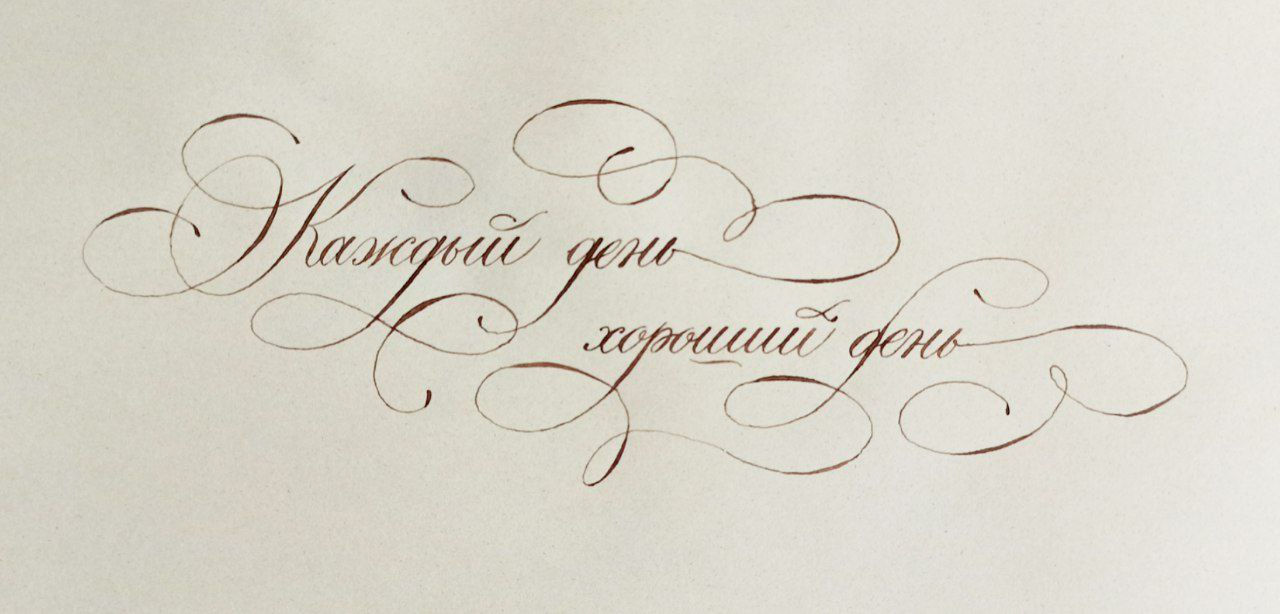 Каждый день
хороший день